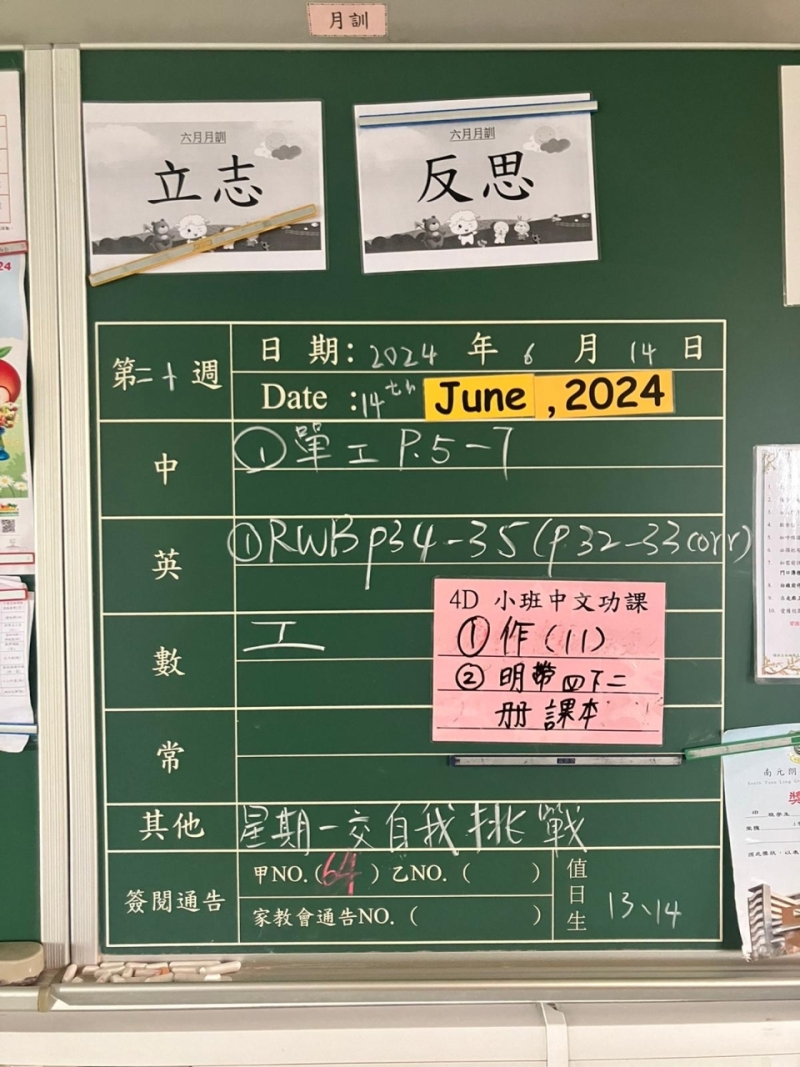 月訓
六月月訓
立志
六月月訓
反思
第二十週
日期：2024年6月14日
Date：14th June , 2024
中
① 單工 P.5-7
英
① RWB p34-35 (p32-33 corr)
數
工
4D 小班中文功課
① 作（11）
② 明帶四下二
冊 課本
常
其他
星期一交自我挑戰
簽閱通告
甲NO.（64）乙NO.（ ）
家教會通告NO.（ ）
值日生
13、14
24
南元朗
獎